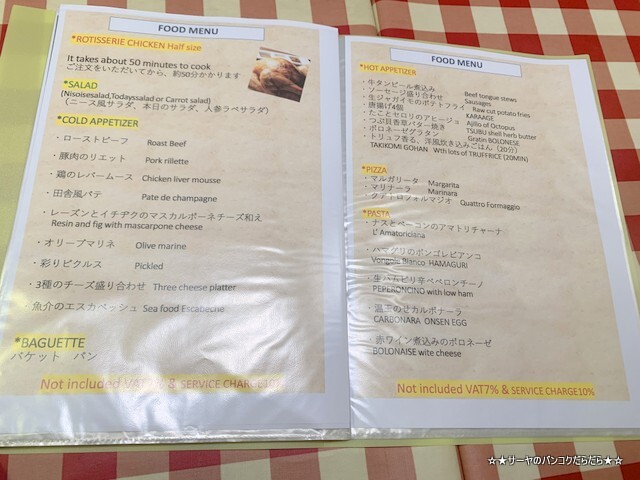 FOOD MENU
*ROTISSERIE CHICKEN Half size
It takes about 50 minutes to cook
ご注文をいただいてから、約50分かかります
*SALAD
(Nisoisesalad,Todayssalad or Carrot salad)
(ニース風サラダ、本日のサラダ、人参ラペサラダ)
*COLD APPETIZER
・ローストビーフ Roast Beef
・豚肉のリエット Pork rillette
・鶏のレバームース Chicken liver mousse
・田舎風パテ Pate de champagne
・レーズンとイチヂクのマスカルポーネチーズ和え
Resin and fig with mascarpone cheese
・オリーブマリネ Olive marine
・彩りピクルス Pickled
・3種のチーズ盛り合わせ Three cheese platter
・魚介のエスカベッシュ Sea food Escabeche
*BAGUETTE
バケット パン
Not included VAT7% & SERVICE CHARGE10%
FOOD MENU
*HOT APPETIZER
・牛タンビール煮込み Beef tongue stews
・ソーセージ盛り合わせ Sausages
・生ジャガイモのポテトフライ Raw cut potato fries
・唐揚げ4個 KARAAGE
・たことセロリのアヒージョ Ajillo of Octopus
・つぶ貝香草バター焼き TSUBU shell herb butter
・ボロネーゼグラタン Gratin BOLONESE
・トリュフ香る、洋風炊き込みごはん(20分)
TAKIKOMI GOHAN Wth lots of TRUFFRICE (20MIN)
*PIZZA
・マルガリータ Margarita
・マリナーラ Marinara
・クアトロフォルマジオ Quattro Formaggio
*PASTA
・ナスとベーコンのアマトリチャーナ
L' Amatoriciana
・ハマグリのボンゴレビアンコ
Vongole Bianco HAMAGURI
・生ハムピリ辛ペペロンチーノ
PEPERONCINO with low ham
・温玉のせカルボナーラ
CARBONARA ONSEN EGG
・赤ワイン煮込みのボロネーゼ
BOLONAISE wite cheese
Not included VAT7% & SERVICE CHARGE10%
☆★サーヤのバンコクだらだら★☆